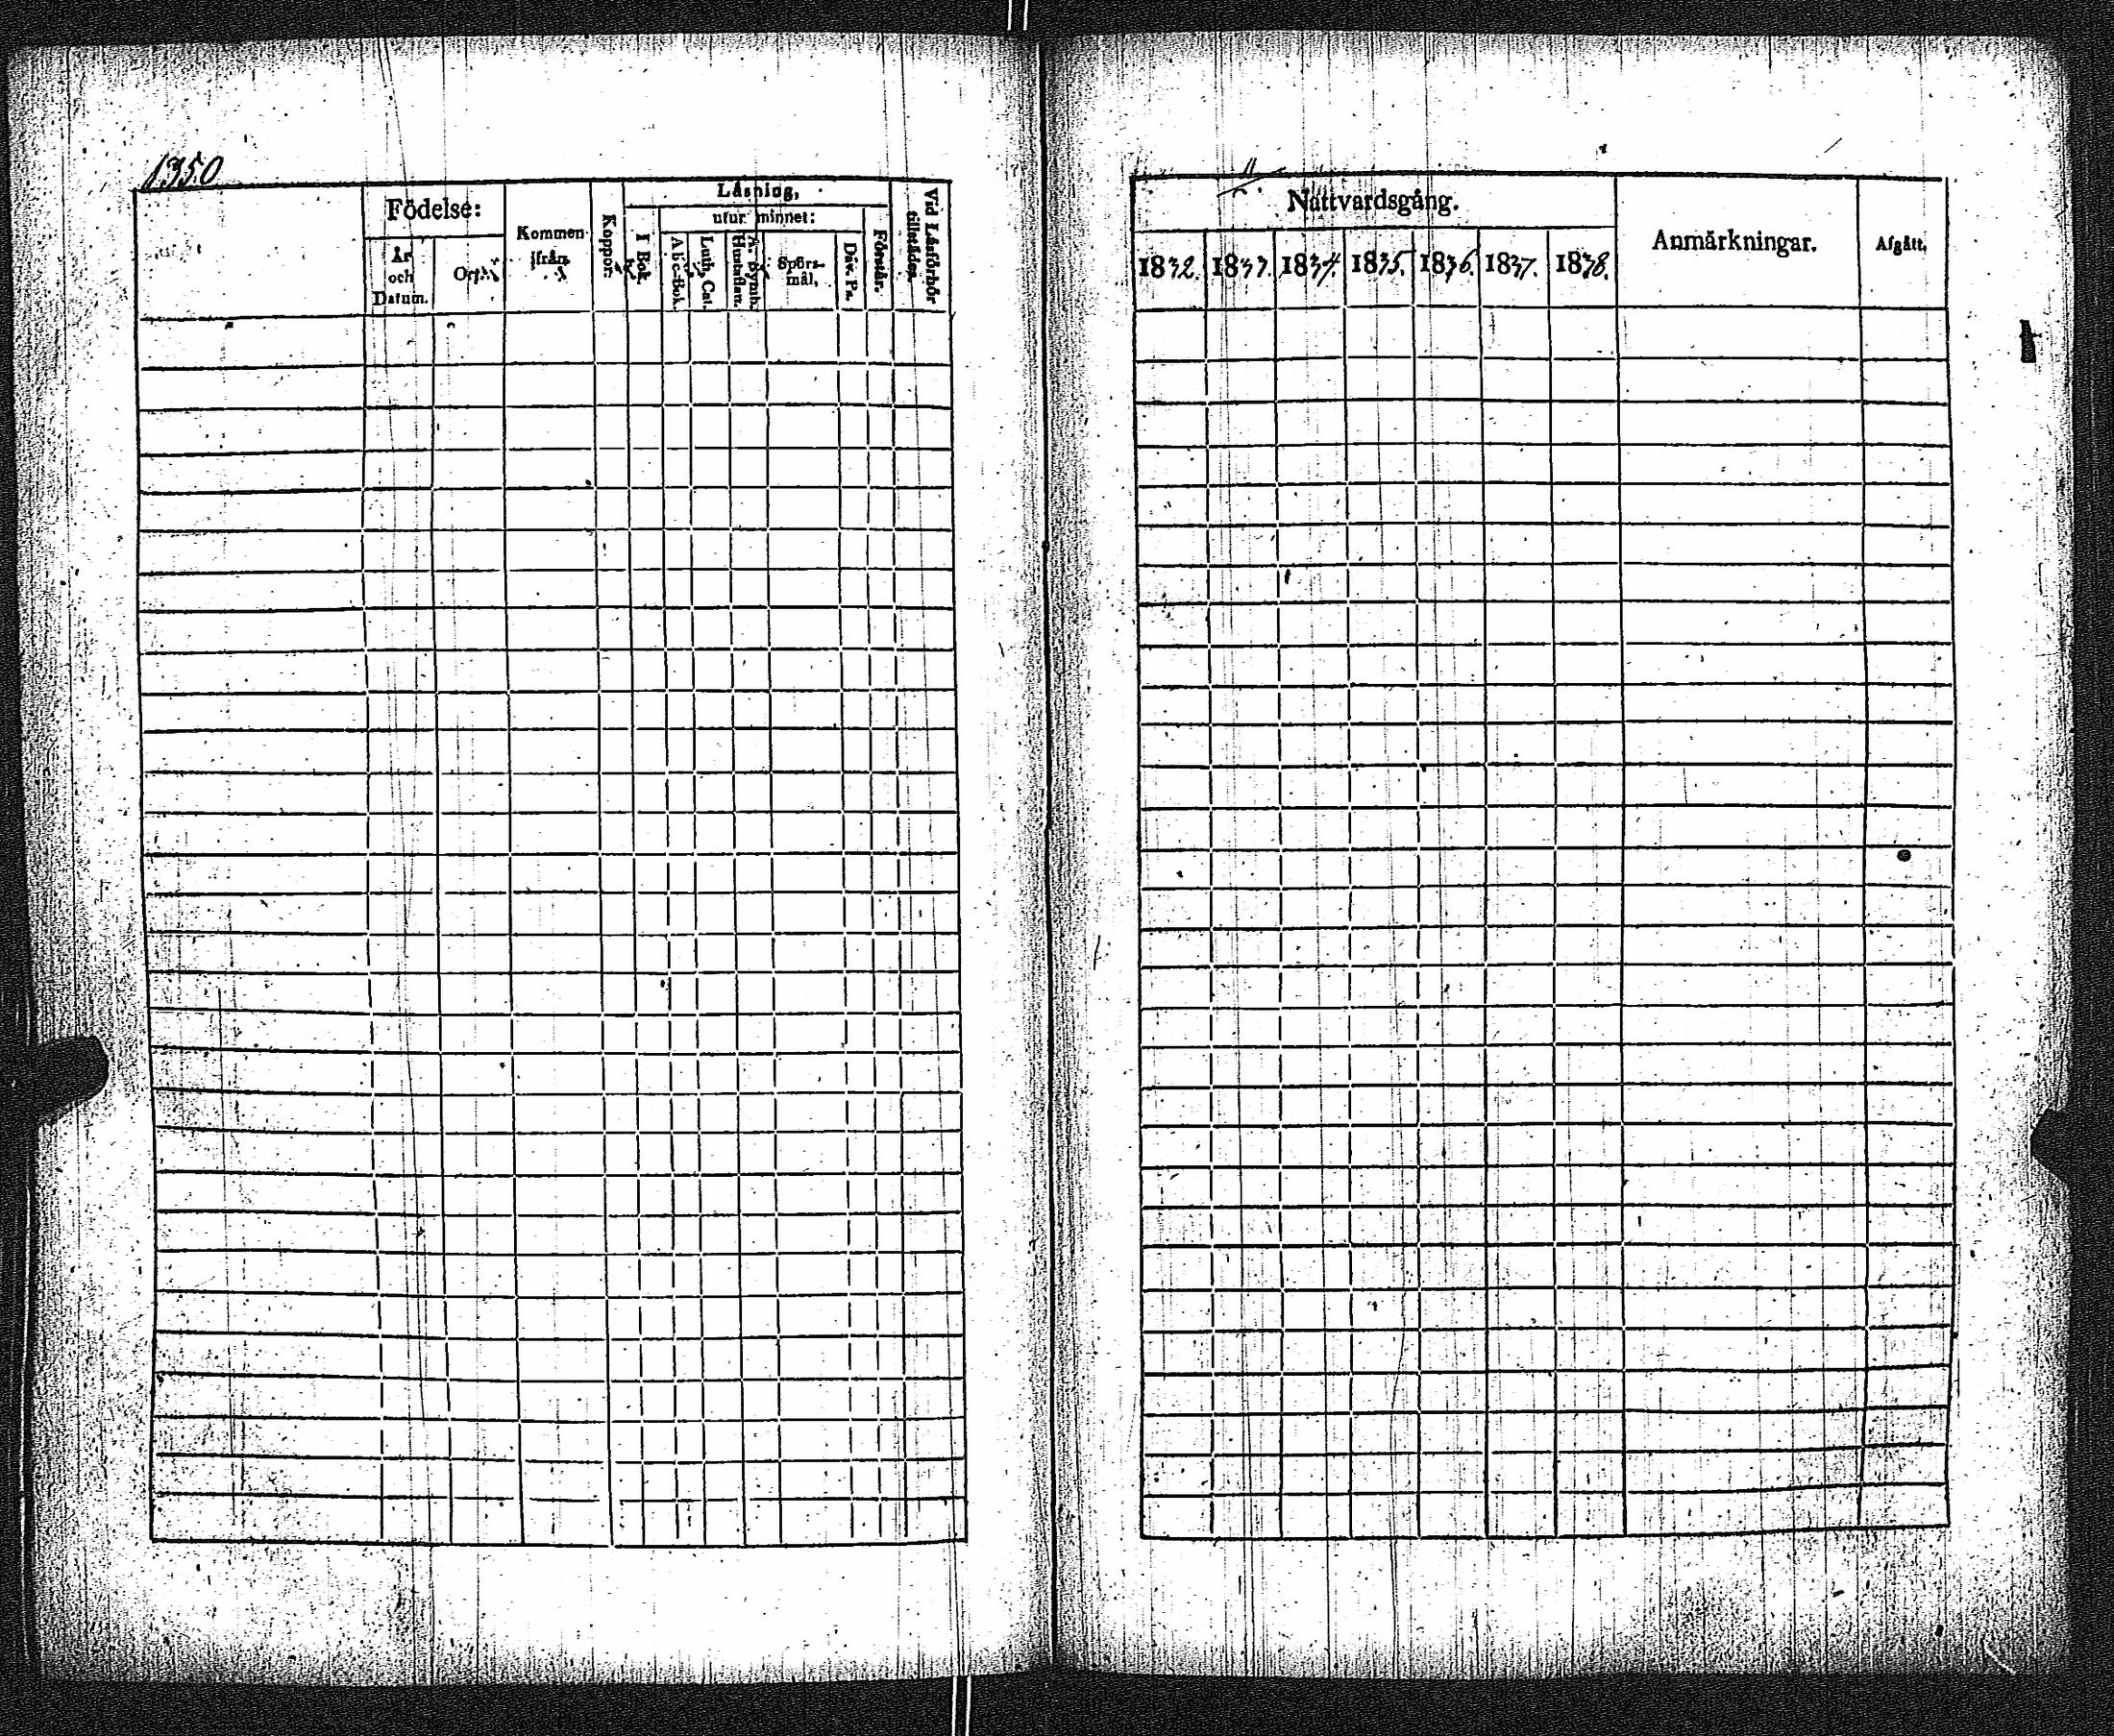 1350
Födelse:
År
och
Datum.
Ort.
Kommen
ifrån
Koppor.
Läsning,
I Bok.
utur minnet:
Abc-Bok.
Luth. Cat.
Hustaflan.
A. Symb.
Spörs-
mål,
Dav. Ps.
Förstår.
Vid Läsförhör
tillstädes.
Nattvardsgång.
1832. 1833. 1834. 1835. 1836. 1837. 1838.
Anmärkningar.
Afgått.